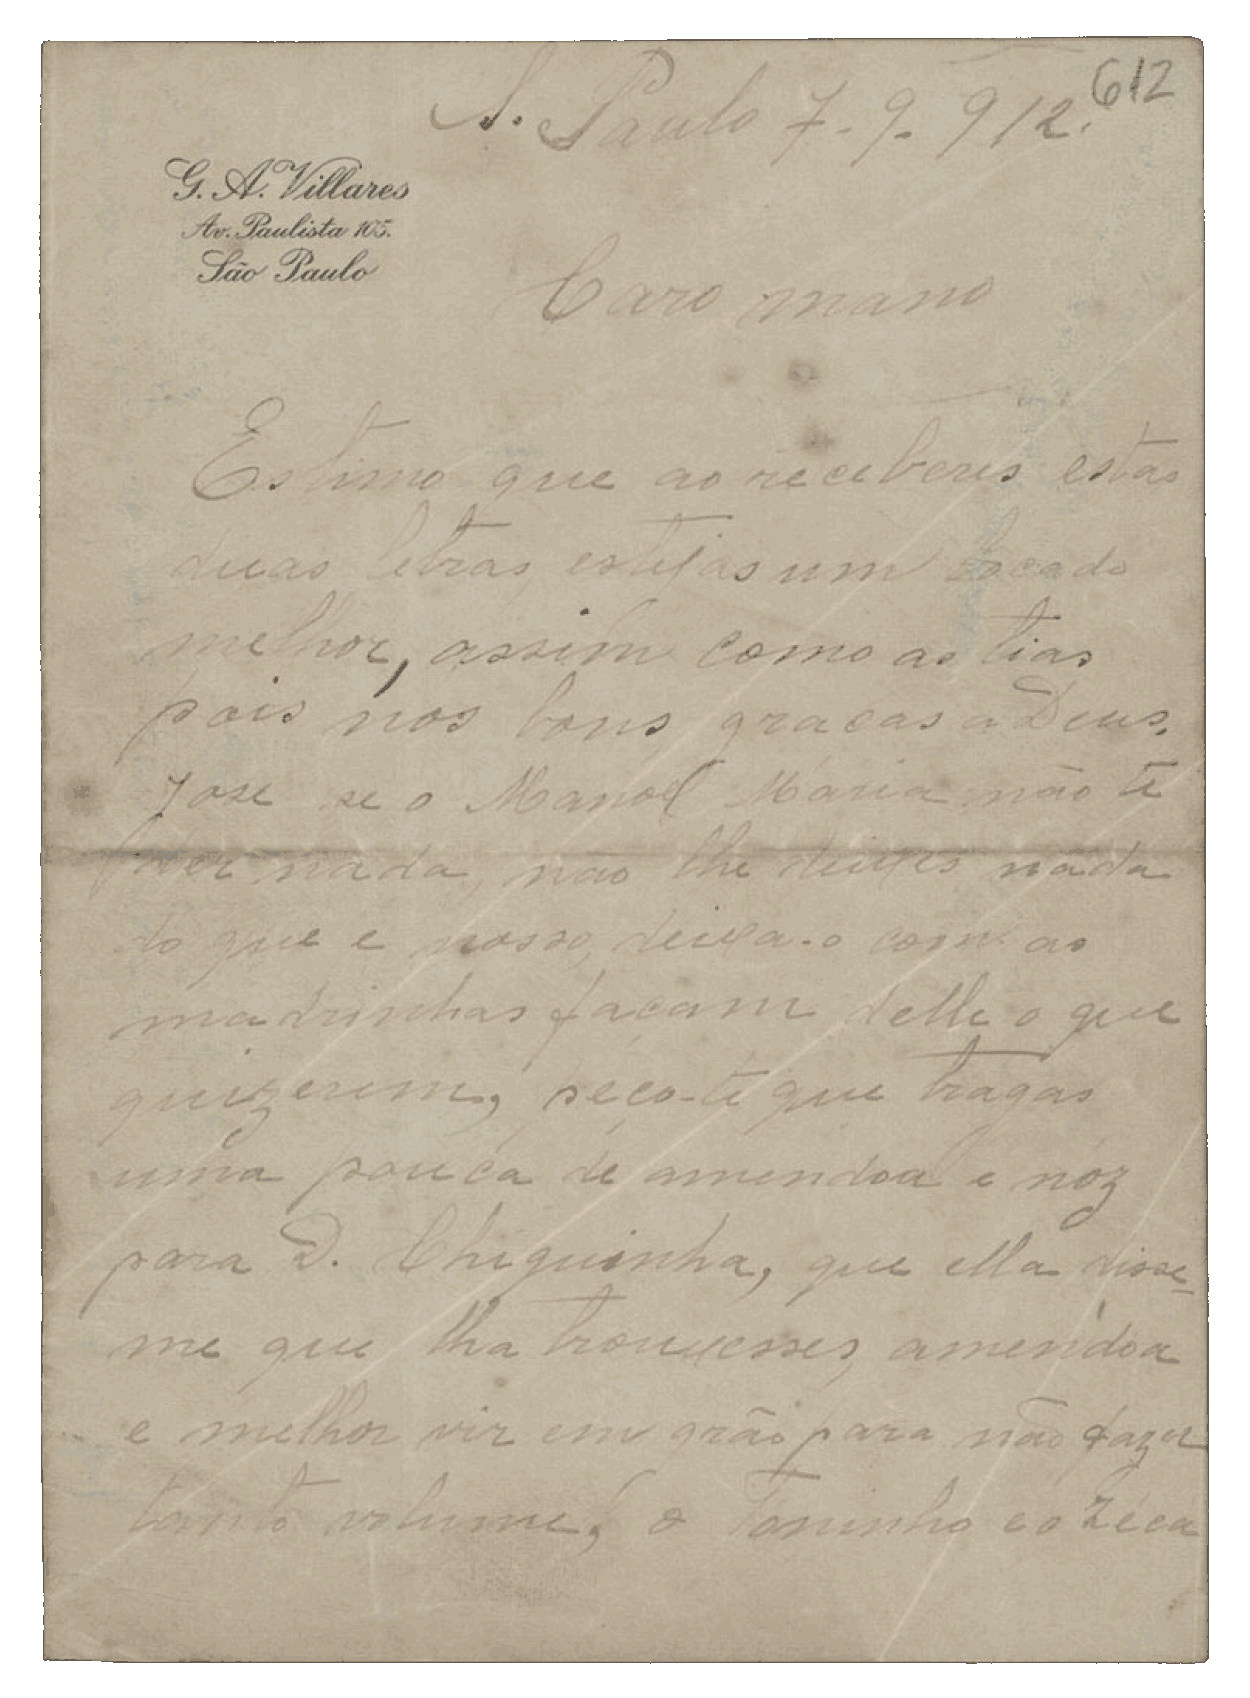 612
S. Paulo 7-9-912.
G. A. Villares
Av. Paulista 105.
São Paulo
Caro mano
Estimo que ao receberes estas
duas letras, estejas um bocado
melhor, assim como as tias
pois nos bons graças a Deus.
Jose se o Manoel Maria não ti
ver nada, não lhe deixes nada
do que e nosso, deixa-o com as
madrinhas façam delle o que
quizerem, peço-te que tragas
uma pouca de amendoa e noz
para D. Chiquinha, que ella disse-
me que lha trouxesses, amendoa
e melhor vir em grão para não fazer
tanto volume, o Toninho e o Zéca